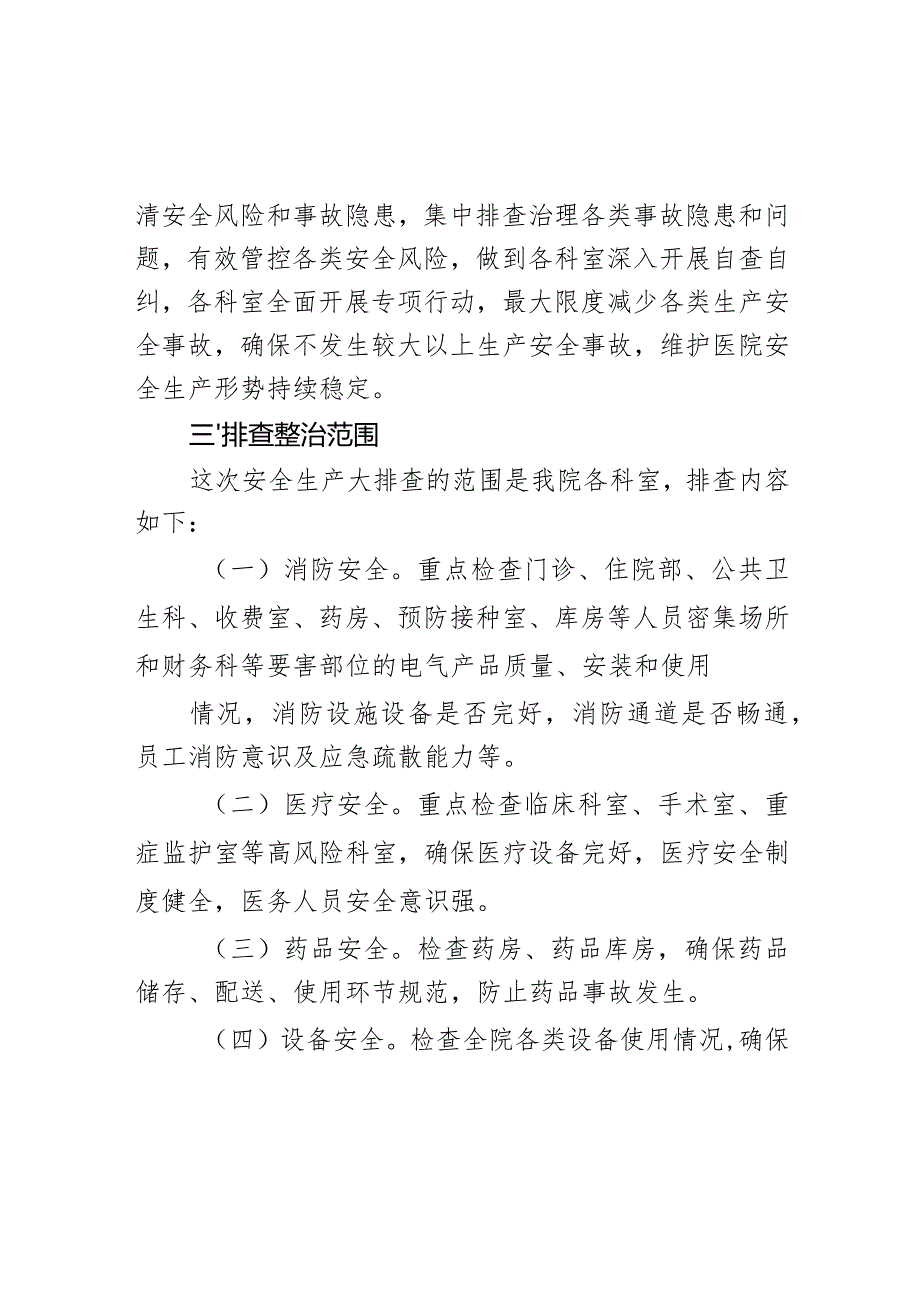 清安全风险和事故隐患，集中排查治理各类事故隐患和问
题，有效管控各类安全风险，做到各科室深入开展自查自
纠，各科室全面开展专项行动，最大限度减少各类生产安
全事故，确保不发生较大以上生产安全事故，维护医院安
全生产形势持续稳定。
三'排查整治范围
这次安全生产大排查的范围是我院各科室，排查内容
如下：
（一）消防安全。重点检查门诊、住院部、公共卫
生科、收费室、药房、预防接种室、库房等人员密集场所
和财务科等要害部位的电气产品质量、安装和使用
情况，消防设施设备是否完好，消防通道是否畅通，
员工消防意识及应急疏散能力等。
（二）医疗安全。重点检查临床科室、手术室、重
症监护室等高风险科室，确保医疗设备完好，医疗安全制
度健全，医务人员安全意识强。
（三）药品安全。检查药房、药品库房，确保药品
储存、配送、使用环节规范，防止药品事故发生。
（四）设备安全。检查全院各类设备使用情况,确保